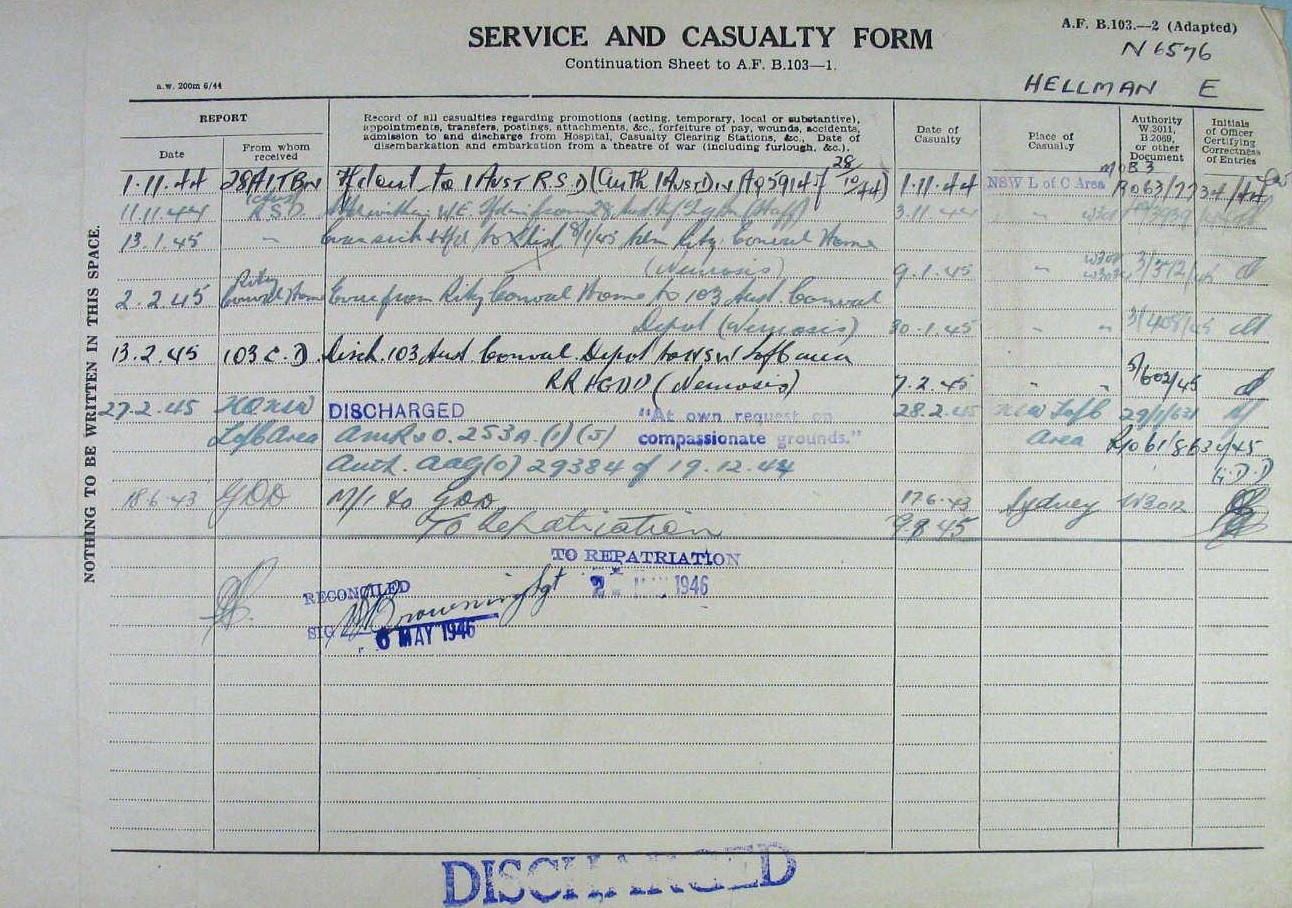 A.F. B.103.—2 (Adapted)
SERVICE AND CASUALTY FORM
N6576
Continuation Sheet to A.F. B.103—1.
HELLMAN E
a.w. 200m 6/44
NOTHING TO BE WRITTEN IN THIS SPACE.
REPORT
Date
From whom received
Record of all casualties regarding promotions (acting, temporary, local or substantive),
appointments, transfers, postings, attachments, &c., forfeiture of pay, wounds, accidents,
admission to and discharge from Hospital, Casualty Clearing Stations, &c., Date of
disembarkation and embarkation from a theatre of war (including furlough, &c.).
Date of Casualty
Place of Casualty
Authority W.3011, B.2069, or other Document
Initials of Officer Certifying Correctness of Entries
1.11.44 28 AITBn out to 1 AUST R.S.D (Auth 1 Aust Div AQ5914 of 28/10/44) 1.11.44 NSW L of C Area
11.11.44 RSD 3.11.44 " "
13.1.45 " Evac sick 8/1/45 Adm Ritz Conval Home
(Nervosis) 9.1.45 " "
2.2.45 Ritz Conval Home Evac from Ritz Conval Home to 103 Aust. Conval
Depot (Nervosis) 30.1.45 " "
13.2.45 103 C.D Disch. 103 Aust Conval Depot to NSW L of C area
RRHGDD (Nervosis) 7.2.45 " " 5/602/45
27.2.45 HQ NSW DISCHARGED "At own request on 28.2.45 NSW L of C
L of C Area AMR&O. 253A.(1)(J) compassionate grounds." Area
Auth. AAG(O) 29384 of 19.12.44 (G.D.D)
18.6.43 GDD M/I to GDD 17.6.43 Sydney W3012
To Repatriation 9.8.45
TO REPATRIATION
2 - 1946
RECONCILED
SIG Browning Sgt
6 MAY 1946
DISCHARGED